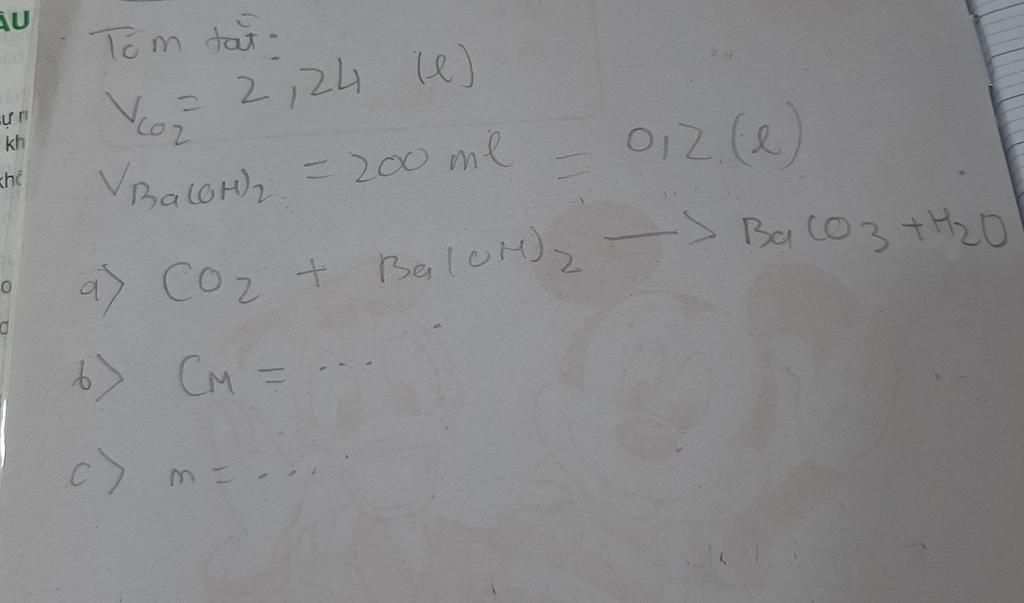 ÂU
Tóm tắt:
V CO2 = 2,24 (l)
kh
V Ba(OH)2 = 200 ml = 0,2 (l)
a) CO2 + Ba(OH)2 → BaCO3 + H2O
b) CM = ...
c) m = ....